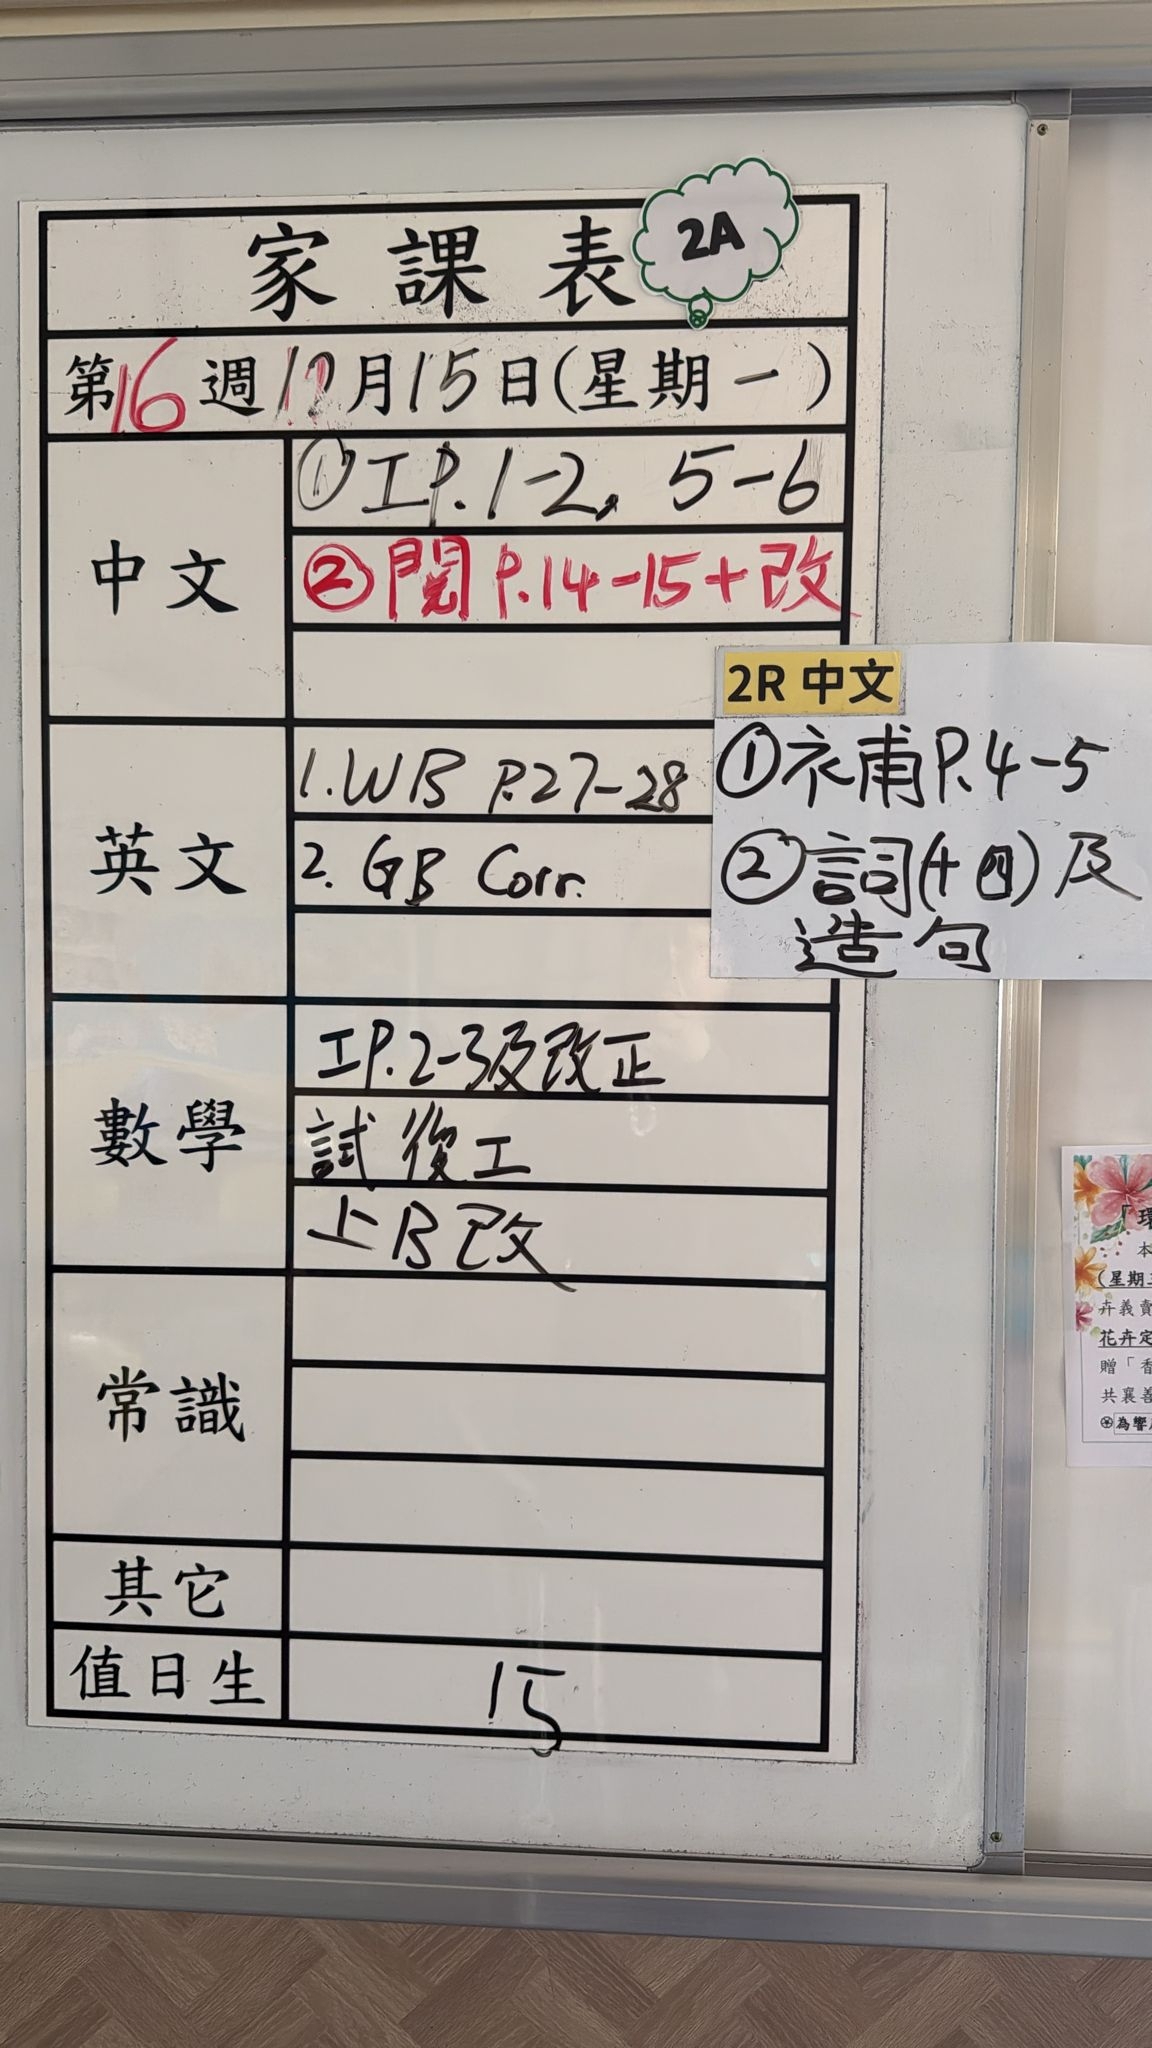 家課表
2A
第16週12月15日(星期一)
中文
①工P.1-2, 5-6
②閱P.14-15+改
2R 中文
①補P.4-5
②詞(十四)及
造句
英文
1.WB P.27-28
2. GB Corr.
數學
工P.2-3及改正
試復工
上B改
常識
其它
值日生
15
「環
本
(星期三
卉義賣
花卉定
贈「香
共襄善
為響應